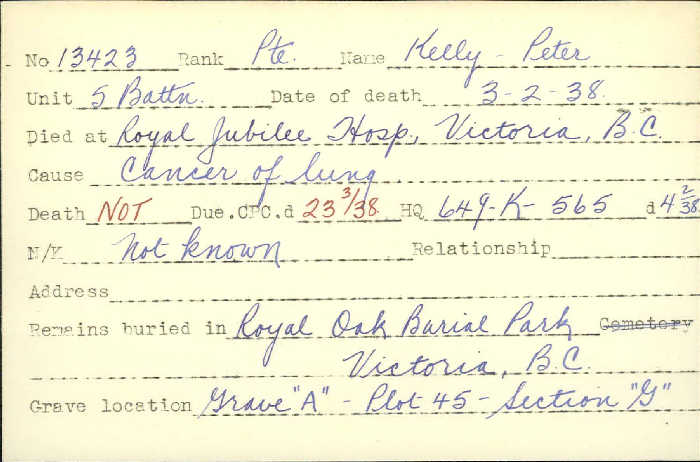 No 13423 Rank Pte. Name Kelly - Peter
Unit 5 Battn. Date of death 3-2-38.
Died at Royal Jubilee Hosp., Victoria, B.C.
Cause Cancer of lung
Death NOT Due. CPC. d 23 3/38 HQ 649-K-565 d 4 2/38
N/K Not known Relationship
Address
Remains buried in Royal Oak Burial Park Cemetery
Victoria, B.C.
Grave location Grave "A" - Plot 45 - Section "G"